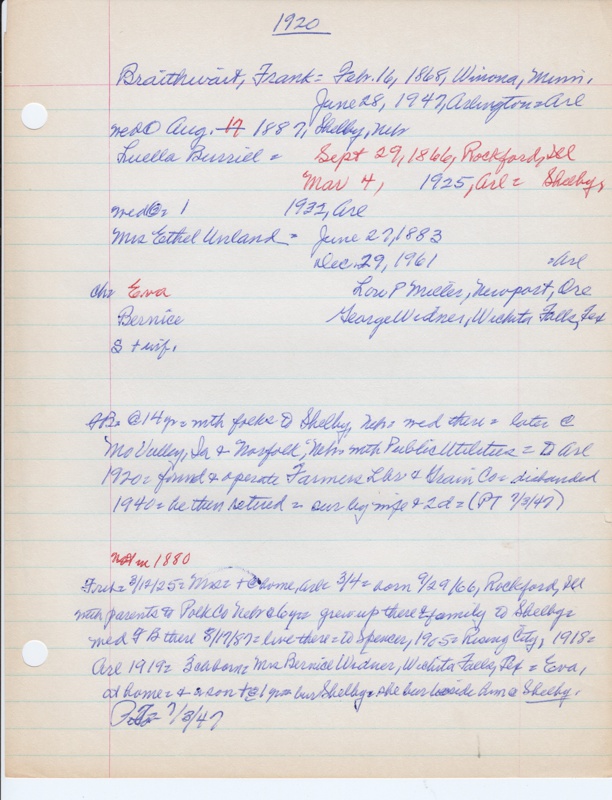 1920
Braithwait, Frank = Febr. 16, 1868, Winona, Minn.
June 28, 1947, Arlington = Arl
med① Aug. 17 1887, Shelby, Nebr
Luella Burriel = Sept 29, 1866, Rockford, Ill
Mar 4, 1925, Arl = Shelby,
med②= 1 1932, Arl
Mrs Ethel Unland = June 27, 1883
Dec. 29, 1961 = Arl
Ch: Eva Lou P Miller, Newport, Ore
Bernice George Widner, Wichita Falls, Tex
S + inf.
@ 14 yr = with folks to Shelby, Nebr = med there = later @
Mo Valley, Ia & Norfolk, Nebr with Public Utilities = to Arl
1920 = found & operate Farmers Lbr & Grain Co = disbanded
1940 = he then retired = sur by wife & 2d = (PT 7/3/47)
Not in 1880
= Mrs = + @ home, Arl 3/4 = born 9/29/66, Rockford, Ill
with parents to Polk Co Nebr @ 6yr = grew up there & family to Shelby =
med FB there 8/17/87 = live there = to Spencer, 1905 = Rising City, 1918 =
Arl 1919 = 3 ca born = Mrs Bernice Widner, Wichita Falls, Tex = Eva,
at home = & a son + @ 1 yr = bur Shelby = she bur beside him @ Shelby.
7/3/47